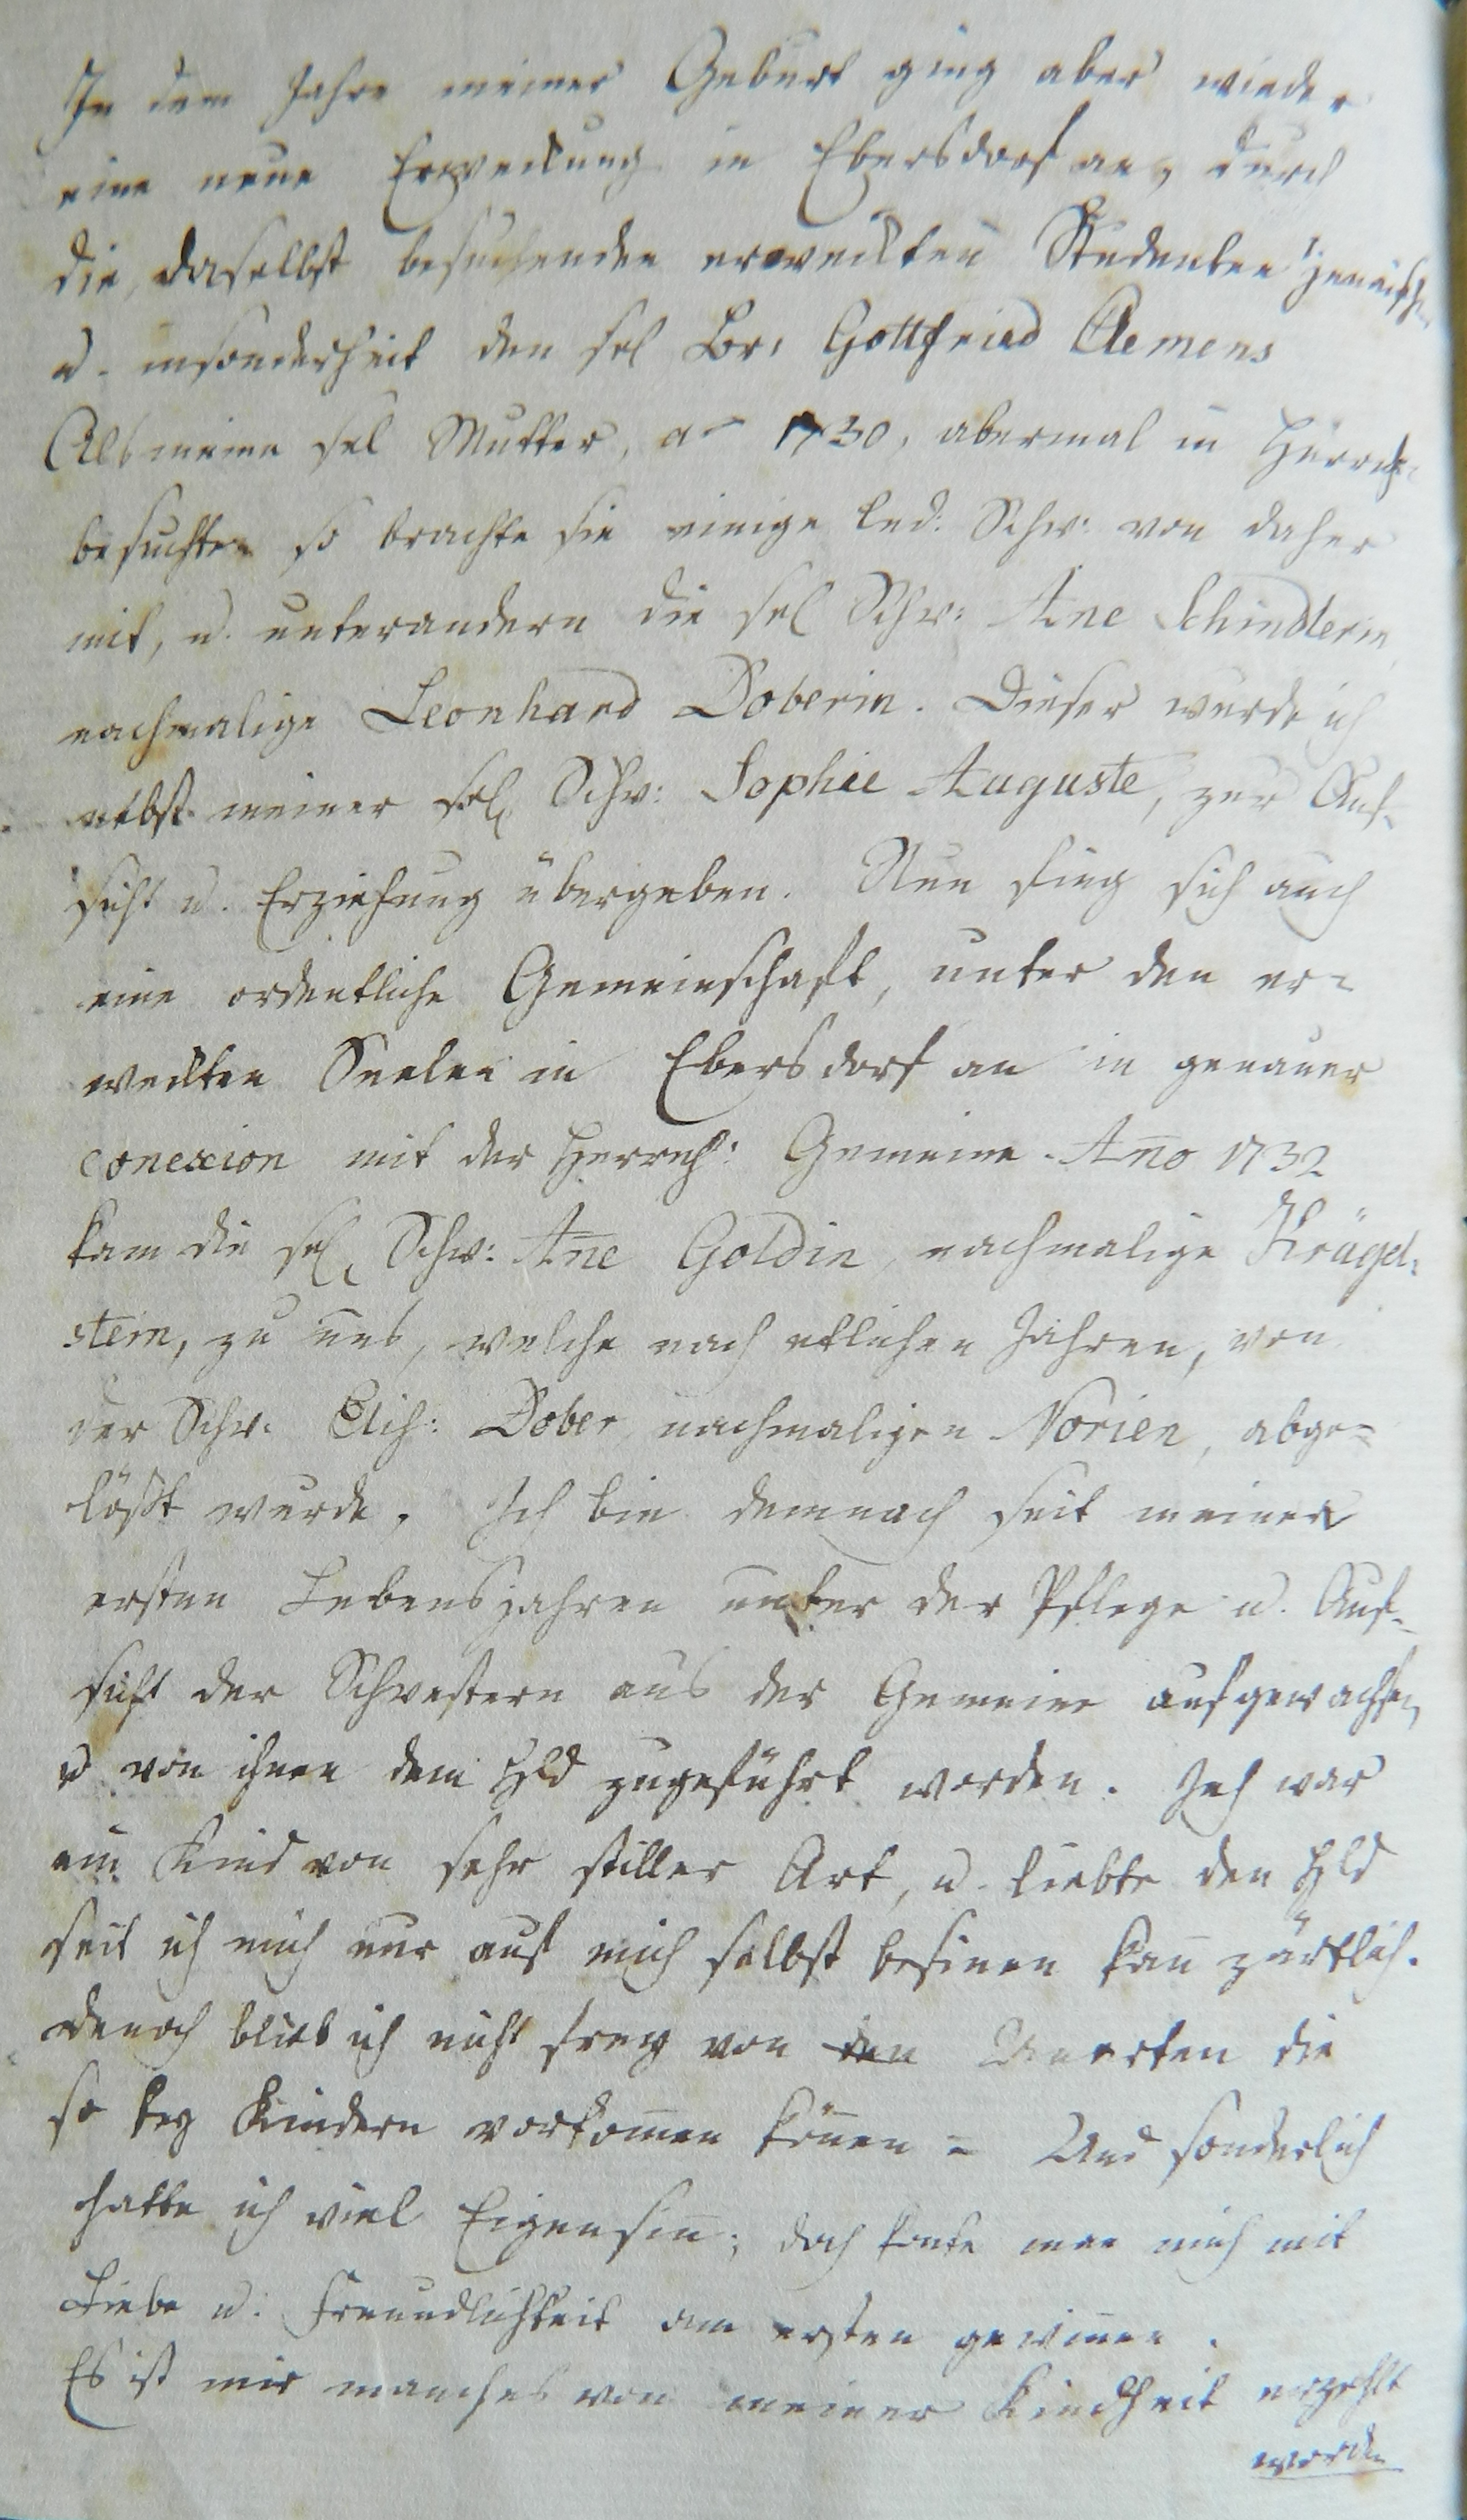 In dem Jahre meiner Geburt ging aber wieder
eine neue Erweckung in Ebersdorf an, durch
die, daselbst besuchenden erweckten Studenten
u. insonderheit den sel Br: Gottfried Clemens
Als meine sel Mutter, ao 1730, abermal in Herrnh:
besuchte, so brachte sie einige led: Schw: von daher
mit, u. unterandern die sel Schw: Ane Schindlerin,
nachmalige Leonhard Doberin. Dieser wurde ich
nebst meiner sel, Schw: Sophie Auguste, zur Auf-
sicht u. Erziehung übergeben. Nun fing sich auch
eine ordentliche Gemeinschaft, unter den er=
weckten Seelen in Ebersdorf an in genauer
conexion mit der Herrnh: Gemeine. Ano 1732
kam die sel, Schw: Ane Goldin, nachmalige Krügel:
stein, zu uns, welche nach etlichen Jahren, von
der Schw: Elis: Dober nachmaligen Norien, abge=
lößt wurde. Ich bin demnach seit meinen
ersten Lebensjahren unter der Pflege u. Auf-
sicht der Schwestern aus der Gemeine aufgewachsen,
u von ihnen dem Hld zugeführt worden. Ich war
ein Kind von sehr stiller Art, u. liebte den Hld
seit ich mich nur auf mich selbst besinen kan zärtlich.
denoch blieb ich nicht frey von den Unarten die
so bey Kindern vorkomen könen = Und sonderlich
hatte ich viel Eigensin; doch konte man mich mit
Liebe u. Freundlichkeit am ersten gewinen.
Es ist mir manches von meiner Kindheit erzehlt
worden